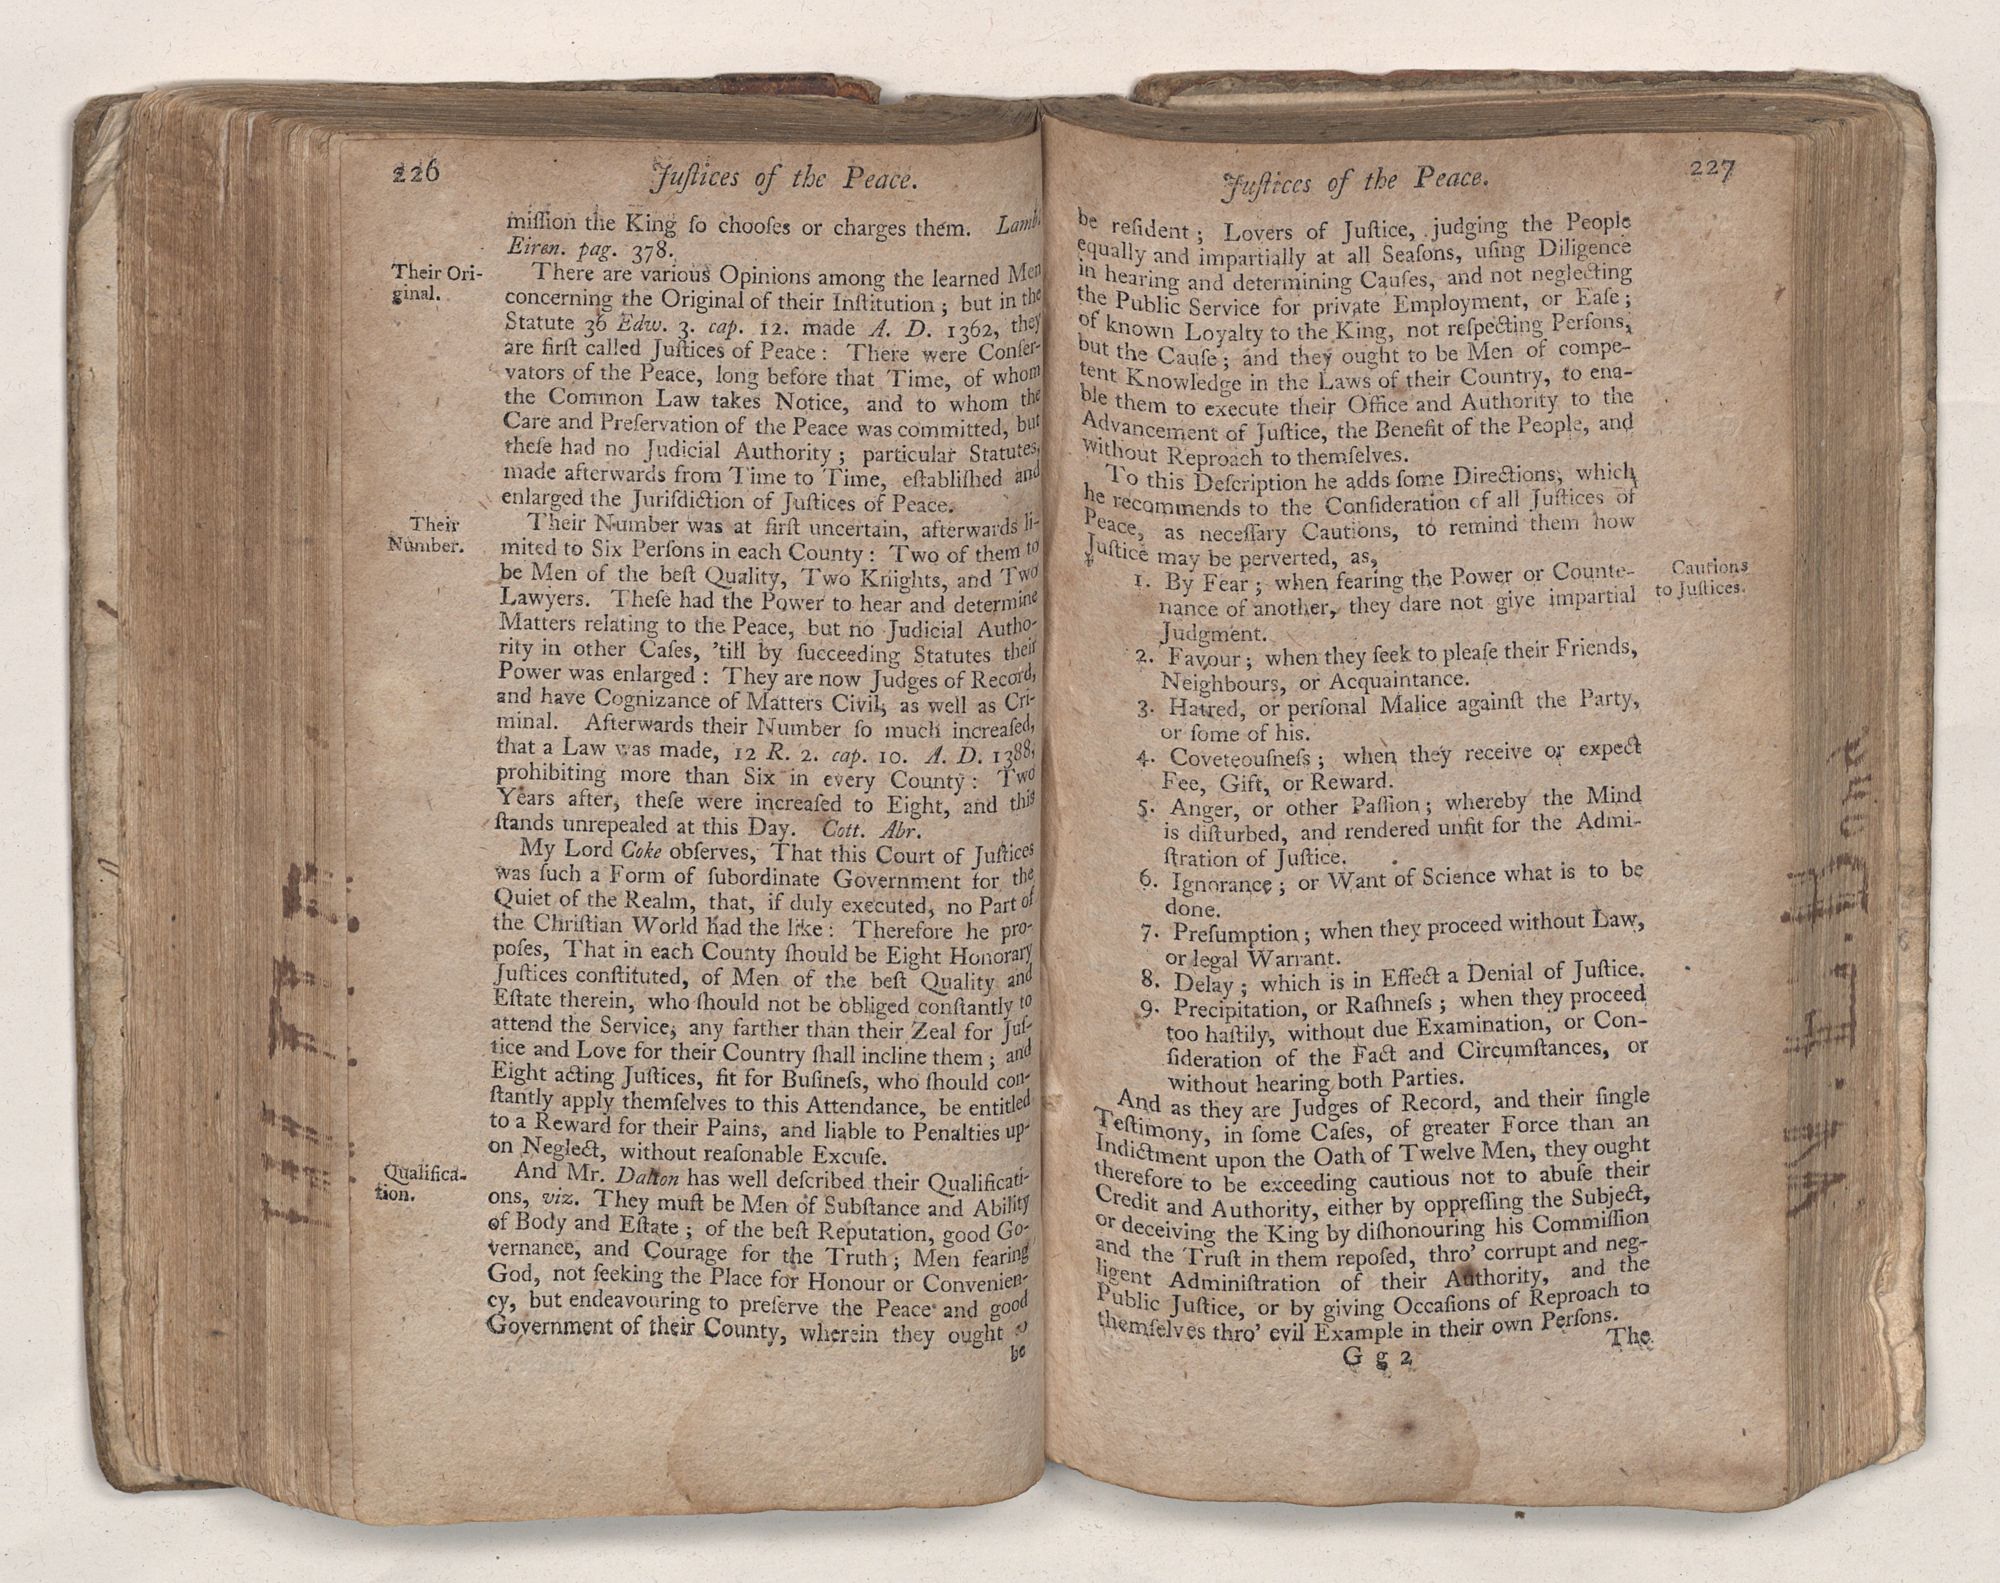 226
Juſtices of the Peace.
miſſion the King ſo chooſes or charges them. Lamb.
Eiren. pag. 378.
Their Ori-
ginal.
There are various Opinions among the learned Men
concerning the Original of their Inſtitution; but in the
Statute 36 Edw. 3. cap. 12. made A. D. 1362, they
are firſt called Juſtices of Peace: There were Conſer-
vators of the Peace, long before that Time, of whom
the Common Law takes Notice, and to whom the
Care and Preſervation of the Peace was committed, but
theſe had no Judicial Authority; particular Statutes,
made afterwards from Time to Time, eſtabliſhed and
enlarged the Juriſdiction of Juſtices of Peace.
Their
Number.
Their Number was at firſt uncertain, afterwards li-
mited to Six Perſons in each County: Two of them to
be Men of the beſt Quality, Two Knights, and Two
Lawyers. Theſe had the Power to hear and determine
Matters relating to the Peace, but no Judicial Autho-
rity in other Caſes, 'till by ſucceeding Statutes their
Power was enlarged: They are now Judges of Record,
and have Cognizance of Matters Civil, as well as Cri-
minal. Afterwards their Number ſo much increaſed,
that a Law was made, 12 R. 2. cap. 10. A. D. 1388,
prohibiting more than Six in every County: Two
Years after, theſe were increaſed to Eight, and this
ſtands unrepealed at this Day. Cott. Abr.
My Lord Coke obſerves, That this Court of Juſtices
was ſuch a Form of ſubordinate Government for the
Quiet of the Realm, that, if duly executed, no Part of
the Chriſtian World had the like: Therefore he pro-
poſes, That in each County ſhould be Eight Honorary
Juſtices conſtituted, of Men of the beſt Quality and
Eſtate therein, who ſhould not be obliged conſtantly to
attend the Service, any farther than their Zeal for Juſ-
tice and Love for their Country ſhall incline them; and
Eight acting Juſtices, fit for Buſineſs, who ſhould con-
ſtantly apply themſelves to this Attendance, be entitled
to a Reward for their Pains, and liable to Penalties up-
on Neglect, without reaſonable Excuſe.
Qualifica-
tion.
And Mr. Dalton has well deſcribed their Qualificati-
ons, viz. They muſt be Men of Subſtance and Ability
of Body and Eſtate; of the beſt Reputation, good Go-
vernance, and Courage for the Truth; Men fearing
God, not ſeeking the Place for Honour or Convenien-
cy, but endeavouring to preſerve the Peace and good
Government of their County, wherein they ought
be
Juſtices of the Peace.
227
be reſident; Lovers of Juſtice, judging the People
equally and impartially at all Seaſons, uſing Diligence
in hearing and determining Cauſes, and not neglecting
the Public Service for private Employment, or Eaſe;
of known Loyalty to the King, not reſpecting Perſons,
but the Cauſe; and they ought to be Men of compe-
tent Knowledge in the Laws of their Country, to ena-
ble them to execute their Office and Authority to the
Advancement of Juſtice, the Benefit of the People, and
without Reproach to themſelves.
To this Deſcription he adds ſome Directions, which
he recommends to the Conſideration of all Juſtices of
Peace, as neceſſary Cautions, to remind them how
Juſtice may be perverted, as,
Cautions
to Juſtices.
1. By Fear; when fearing the Power or Counte-
nance of another, they dare not give impartial
Judgment.
2. Favour; when they ſeek to pleaſe their Friends,
Neighbours, or Acquaintance.
3. Hatred, or perſonal Malice againſt the Party,
or ſome of his.
4. Coveteouſneſs; when they receive or expect
Fee, Gift, or Reward.
5. Anger, or other Paſſion; whereby the Mind
is diſturbed, and rendered unfit for the Admi-
ſtration of Juſtice.
6. Ignorance; or Want of Science what is to be
done.
7. Preſumption; when they proceed without Law,
or legal Warrant.
8. Delay; which is in Effect a Denial of Juſtice.
9. Precipitation, or Raſhneſs; when they proceed
too haſtily, without due Examination, or Con-
ſideration of the Fact and Circumſtances, or
without hearing both Parties.
And as they are Judges of Record, and their ſingle
Teſtimony, in ſome Caſes, of greater Force than an
Indictment upon the Oath of Twelve Men, they ought
therefore to be exceeding cautious not to abuſe their
Credit and Authority, either by oppreſſing the Subject,
or deceiving the King by diſhonouring his Commiſſion
and the Truſt in them repoſed, thro' corrupt and neg-
ligent Adminiſtration of their Authority, and the
Public Juſtice, or by giving Occaſions of Reproach to
themſelves thro' evil Example in their own Perſons.
G g 2
The